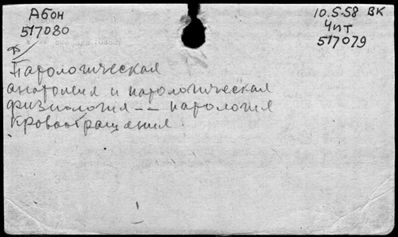 Абон
517080
10.5-58 ВК
Чит
517079
Патологическая
анатомия и патологическая
физиология -- патология
кровообращения